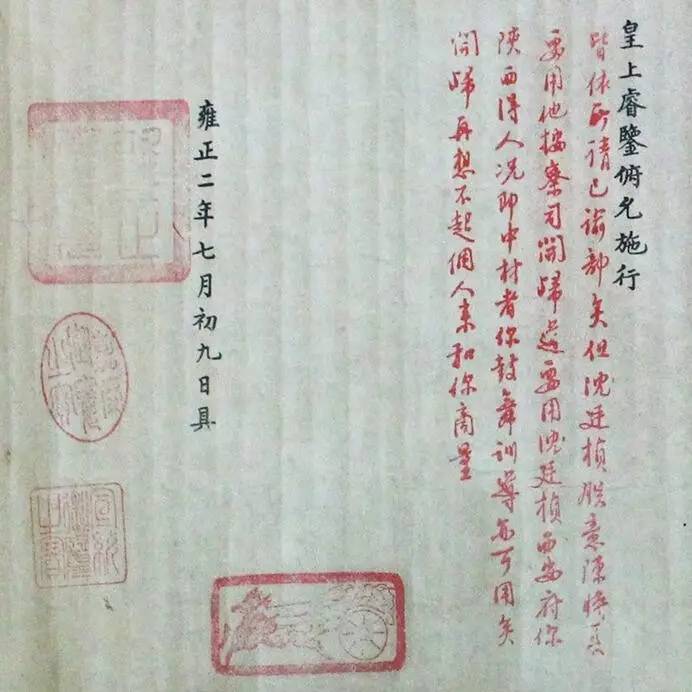 皇上睿鑒俯允施行
皆依所請已諭部矣但沈廷楨朕意陳
要用他按察司開歸道要用沈廷楨西安府你
陝西得人況即中材者你鼓舞訓導亦可用矣
開歸再想不起個人來和你商量
雍正二年七月初九日具